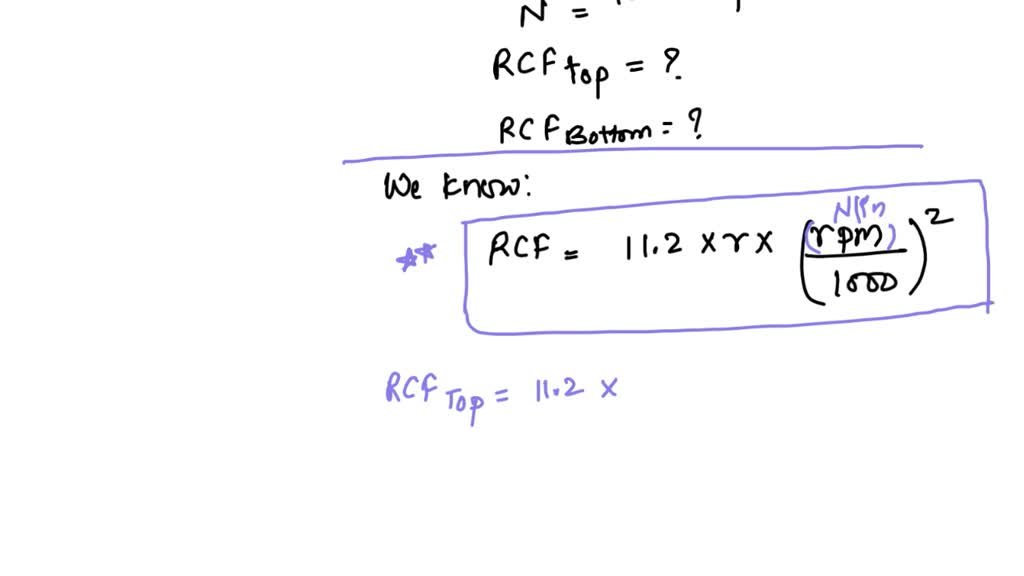 N =
RCF top = ?
RCF Bottom = ?
We know:
** RCF = 11.2 x r x ((rpm)/1000)^2
RCF Top = 11.2 x